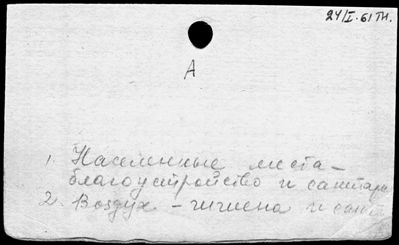 24/I-61 тн.
А
1. Населенные места –
благоустройство и санитар
2. Воздух – гигиена и санит